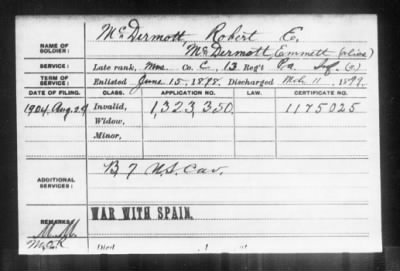 McDermott, Robert E.
NAME OF SOLDIER: McDermott, Emmett (alias)
SERVICE: Late rank, Mus. Co. C, 13 Reg't Pa. Inf. (o)
TERM OF SERVICE: Enlisted June 15, 1898. Discharged Mch 11, 1899.
DATE OF FILING. CLASS. APPLICATION NO. LAW. CERTIFICATE NO.
1904, Aug. 29 Invalid, 1,323,350. 1175025
Widow,
Minor,
ADDITIONAL SERVICES: B, 7 U.S. Cav.
REMARKS: WAR WITH SPAIN.
Died